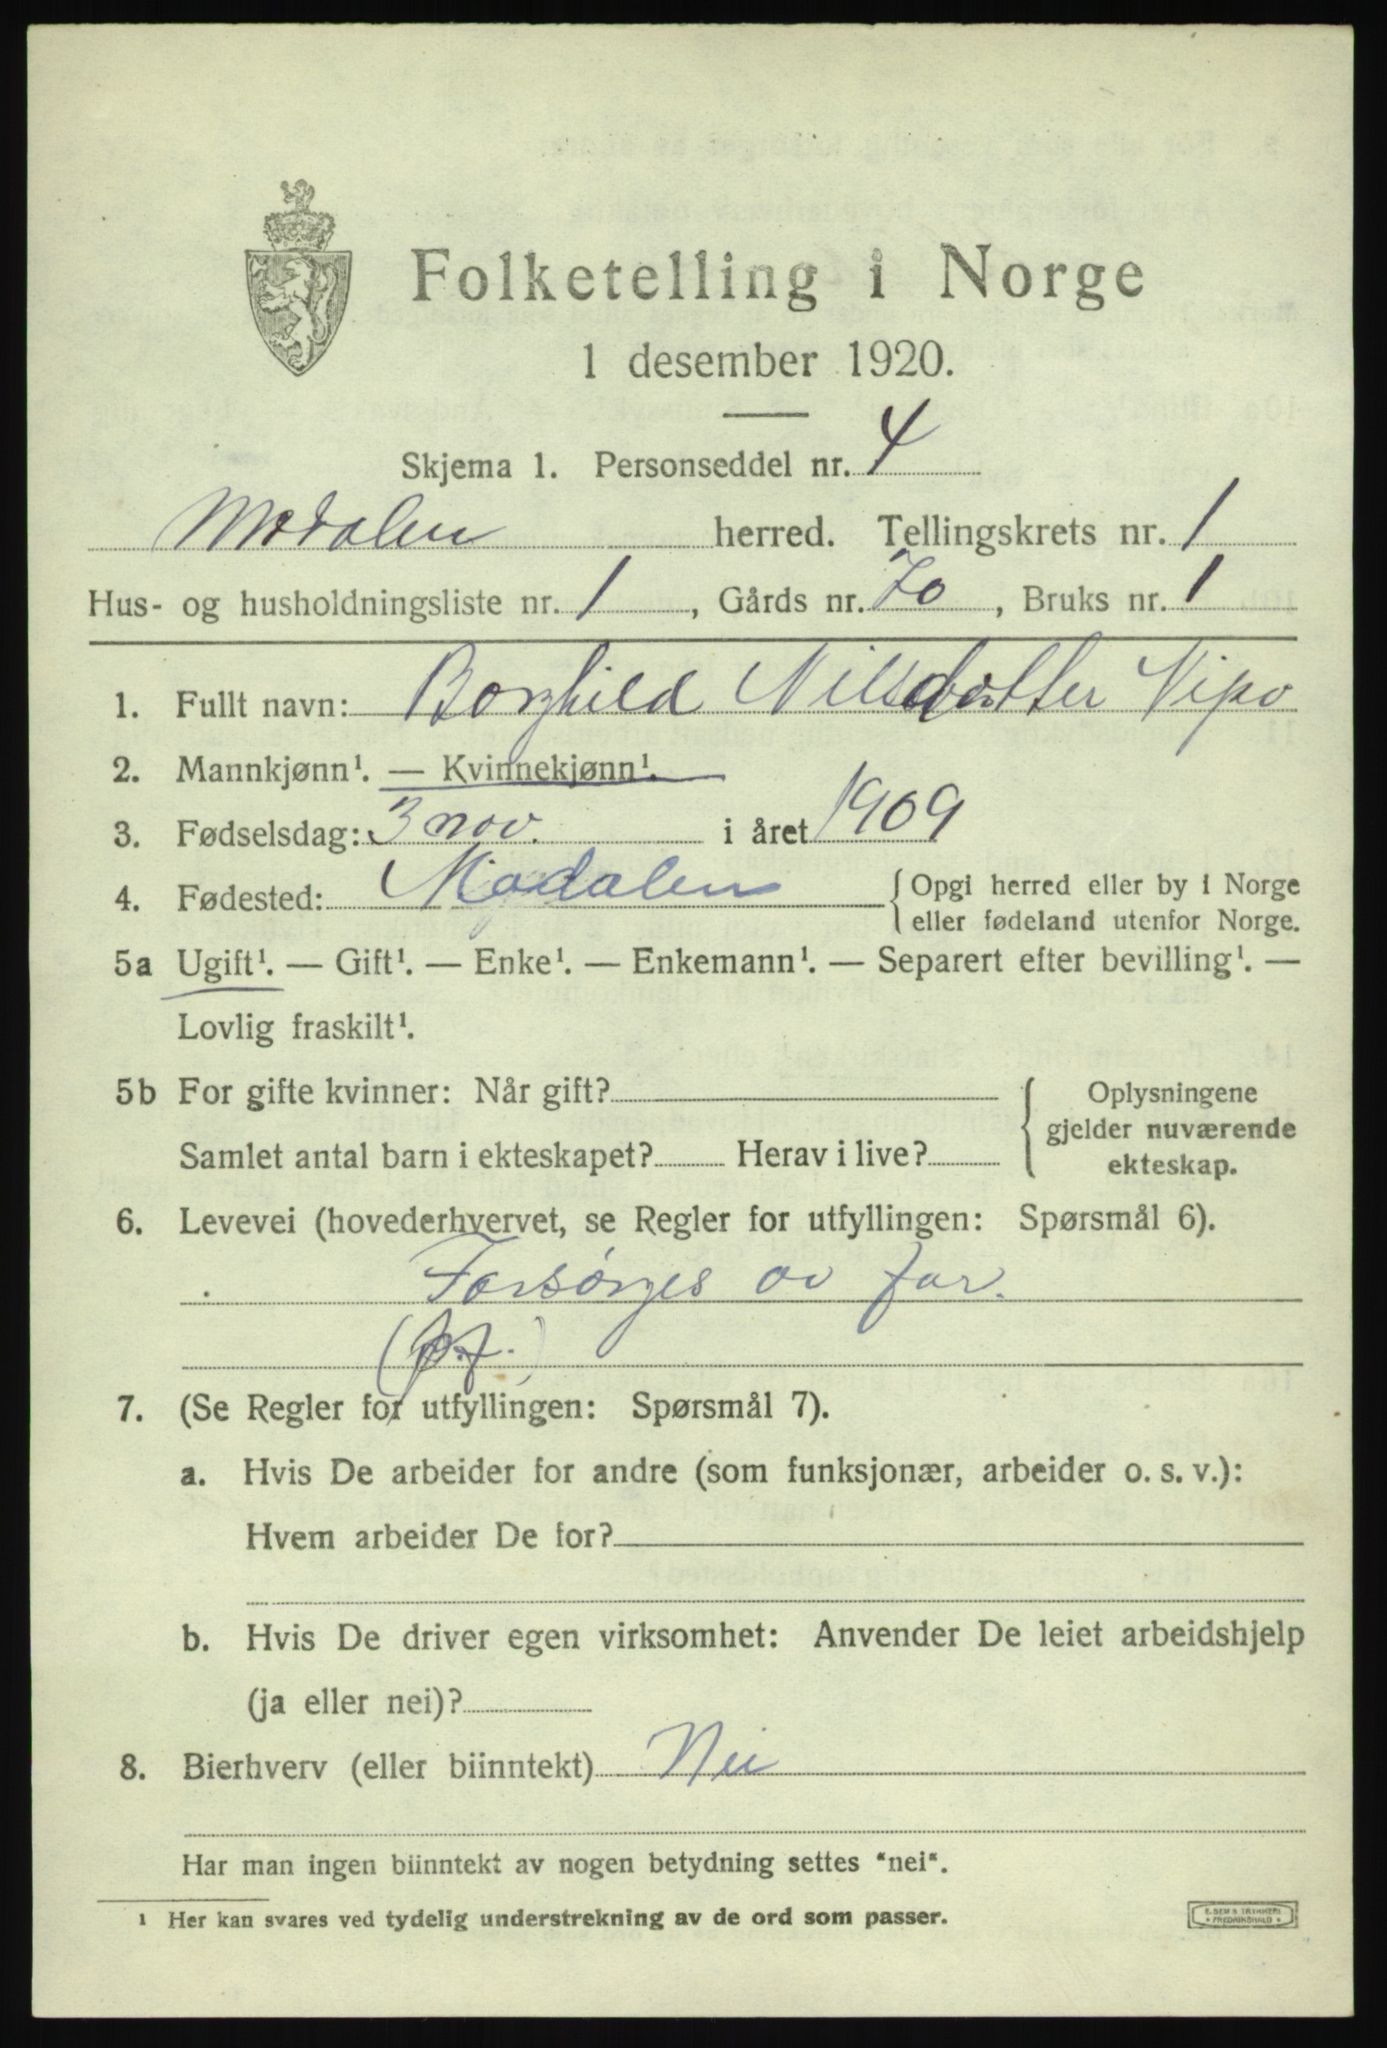 Folketelling i Norge
1 desember 1920.
Skjema 1. Personseddel nr. 4
Modalen herred. Tellingskrets nr. 1
Hus- og husholdningsliste nr. 1, Gårds nr. 70, Bruks nr. 1
1. Fullt navn: Borghild Nilsdotter Nipo
2. Mannkjønn¹. — Kvinnekjønn¹.
3. Fødselsdag: 3 nov. i året 1909
4. Fødested: Modalen { Opgi herred eller by i Norge
eller fødeland utenfor Norge.
5a Ugift¹. — Gift¹. — Enke¹. — Enkemann¹. — Separert efter bevilling¹. —
Lovlig fraskilt¹.
5b For gifte kvinner: Når gift? { Oplysningene
gjelder nuværende
Samlet antal barn i ekteskapet? Herav i live? ekteskap.
6. Levevei (hovederhvervet, se Regler for utfyllingen: Spørsmål 6).
Forsörges av far.
7. (Se Regler for utfyllingen: Spørsmål 7).
a. Hvis De arbeider for andre (som funksjonær, arbeider o. s. v.):
Hvem arbeider De for?
b. Hvis De driver egen virksomhet: Anvender De leiet arbeidshjelp
(ja eller nei)?
8. Bierhverv (eller biinntekt) Nei
Har man ingen biinntekt av nogen betydning settes "nei".
¹ Her kan svares ved tydelig understrekning av de ord som passer.